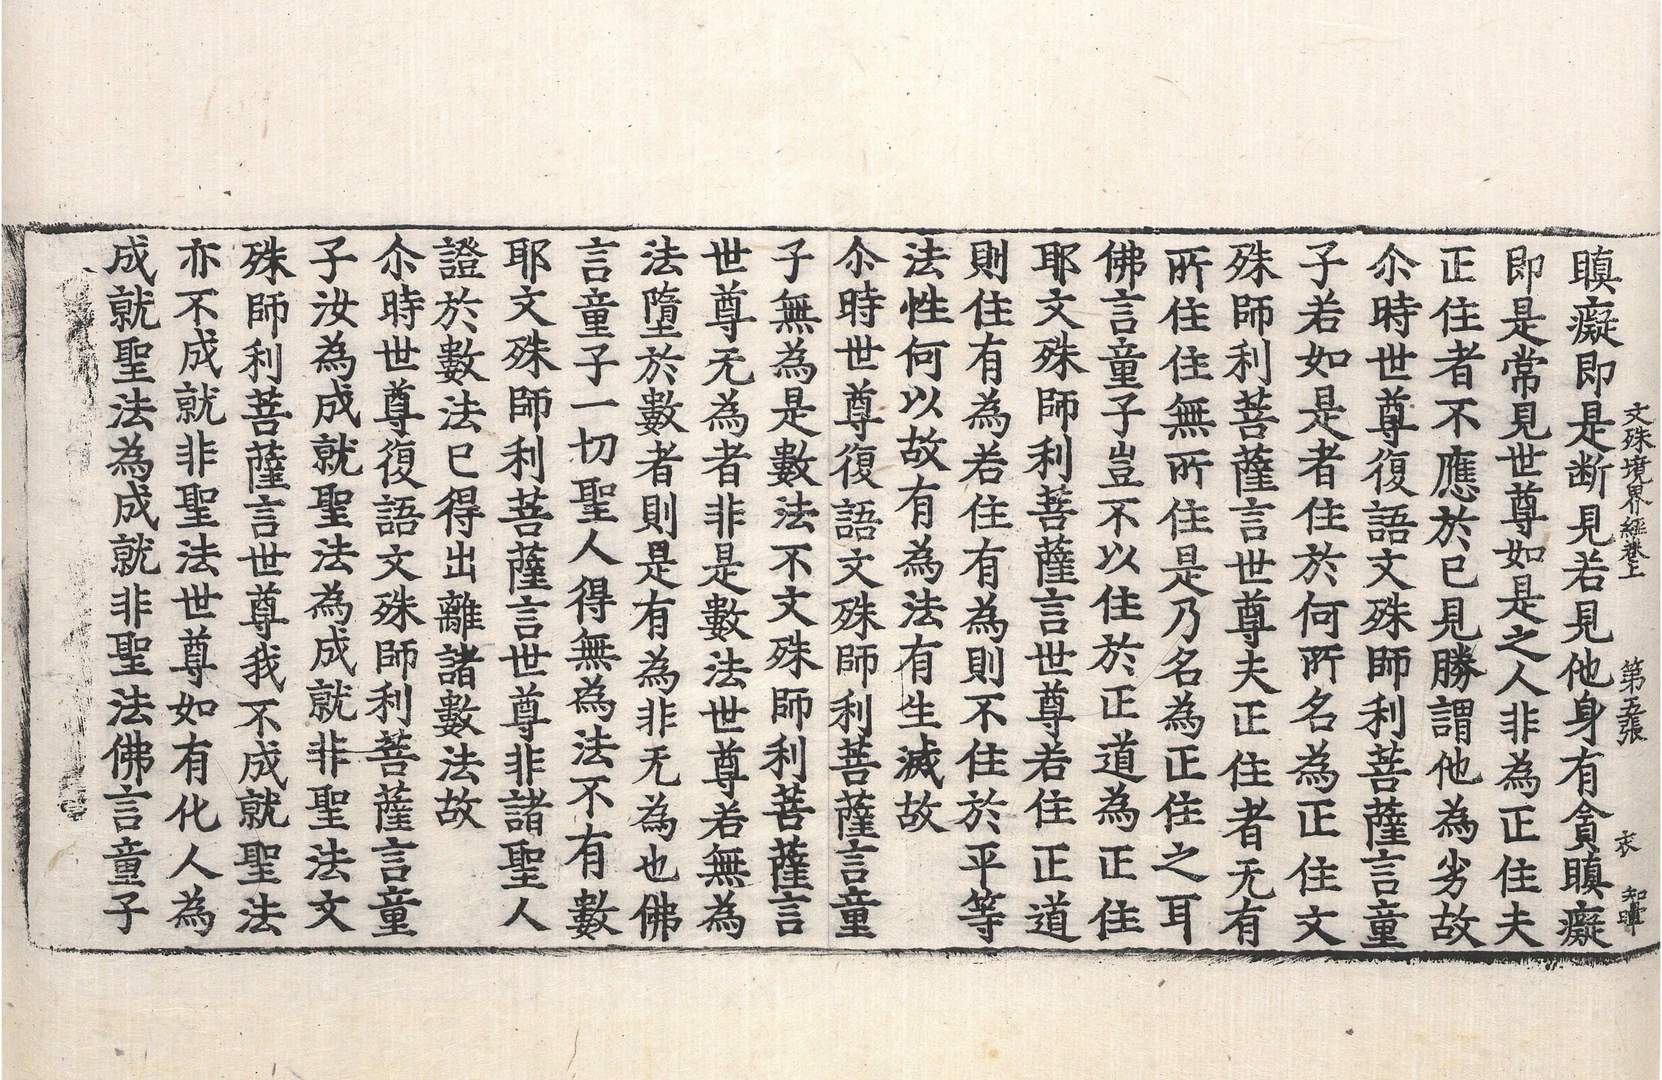 文殊境界經卷上　第五張　衣　知暐
瞋癡即是断見若見他身有貪瞋癡
即是常見世尊如是之人非為正住夫
正住者不應於已見勝謂他為劣故
尒時世尊復語文殊師利菩薩言童
子若如是者住於何所名為正住文
殊師利菩薩言世尊夫正住者无有
所住住無所住是乃名為正住之耳
佛言童子豈不以住於正道為正住
耶文殊師利菩薩言世尊若住正道
則住有為若住有為則不住於平等
法性何以故有為法有生滅故
尒時世尊復語文殊師利菩薩言童
子無為是數法不文殊師利菩薩言
世尊无為者非是數法世尊若無為
法墮於數者則是有為非无為也佛
言童子一切聖人得無為法不有數
耶文殊師利菩薩言世尊非諸聖人
證於數法已得出離諸數法故
尒時世尊復語文殊師利菩薩言童
子汝為成就聖法為成就非聖法文
殊師利菩薩言世尊我不成就聖法
亦不成就非聖法世尊如有化人為
成就聖法為成就非聖法佛言童子